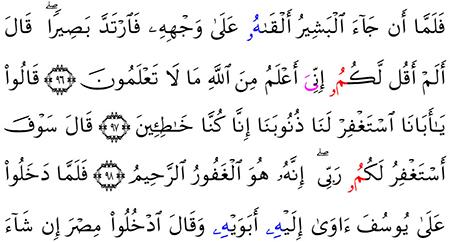 فَلَمَّا أَن جَآءَ ٱلْبَشِيرُ أَلْقَىٰهُۥ عَلَىٰ وَجْهِهِۦ فَٱرْتَدَّ بَصِيرًاۖ قَالَ
أَلَمْ أَقُل لَّكُمُۥٓ إِنِّىَ أَعْلَمُ مِنَ ٱللَّهِ مَا لَا تَعْلَمُونَ ۝٩٦ قَالُواْ
يَٰٓأَبَانَا ٱسْتَغْفِرْ لَنَا ذُنُوبَنَآ إِنَّا كُنَّا خَٰطِـِٔينَ ۝٩٧ قَالَ سَوْفَ
أَسْتَغْفِرُ لَكُمُۥ رَبِّىٓۖ إِنَّهُۥ هُوَ ٱلْغَفُورُ ٱلرَّحِيمُ ۝٩٨ فَلَمَّا دَخَلُواْ
عَلَىٰ يُوسُفَ ءَاوَىٰٓ إِلَيْهِۦ أَبَوَيْهِۦ وَقَالَ ٱدْخُلُواْ مِصْرَ إِن شَآءَ